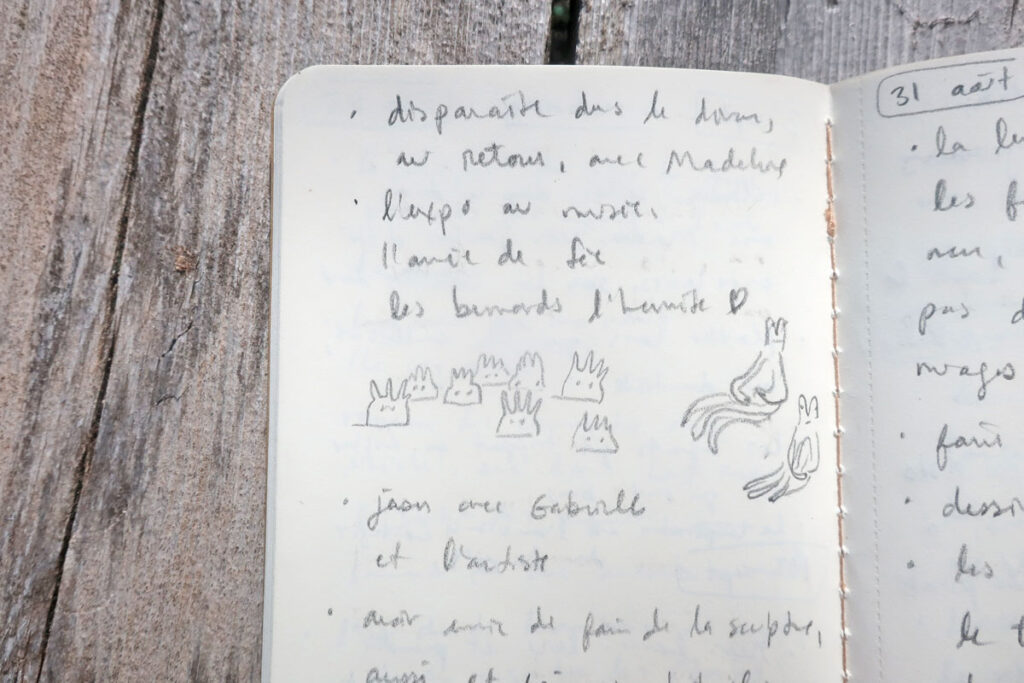 • disparaître dans le divan,
au retour, avec Madeline
• l'expo au musée.
l'amie de Fée
les bernards l'hermite ♡
• jaser avec Gabrielle
et l'artiste
• avoir envie de faire de la sculpture,
aussi et
31 août
• la
les
pas d
nuages
• faire
• dessi
• les
le t